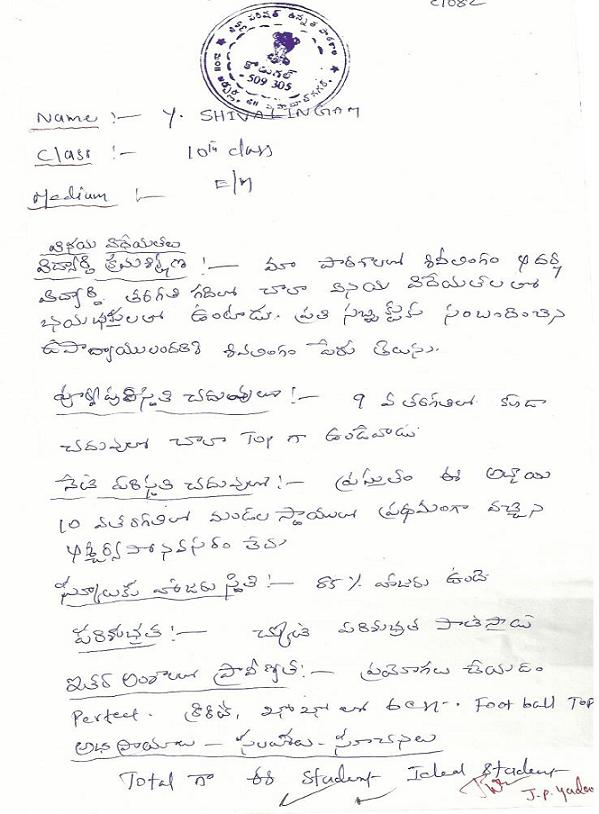 C1082
జిల్లా పరిషత్ ఉన్నత పాఠశాల
కోడంగల్
509 305
Name :- Y. SHIVALINGAM
Class :- 10th class
Medium :- E/M
వినయ విధేయతలు
విద్యార్థి క్రమశిక్షణ :- మా పాఠశాలలో శివలింగం ఆదర్శ
విద్యార్థి. తరగతి గదిలో చాలా వినయ విధేయతలతో
భయభక్తులతో ఉంటాడు. ప్రతి సబ్జెక్ట్‌కు సంబంధించిన
ఉపాధ్యాయులందరికి శివలింగం పేరు తెలుసు.
పూర్వపరిస్థితి చదువులో :- 9 వ తరగతిలో కూడా
చదువులో చాలా Top గా ఉండేవాడు
నేటి పరిస్థితి చదువులో :- ప్రస్తుతం ఈ అబ్బాయి
10 వతరగతిలో మండల స్థాయిలో ప్రథమంగా వచ్చిన
ఆశ్చర్యపోనవసరం లేదు
స్కూలుకు హాజరు స్థితి :- 85 % హాజరు ఉంది
పరిశుభ్రత :- చక్కటి పరిశుభ్రత పాటిస్తాడు
ఇతర అంశాలలో ప్రావీణ్యత :- ప్రయోగాలు చేయడం
Perfect. క్రికెట్, ఖోఖో లో Best. Foot ball Top
అభిప్రాయాలు - సలహాలు - సూచనలు
Total గా ఈ Student Ideal Student
J.P. Yadav